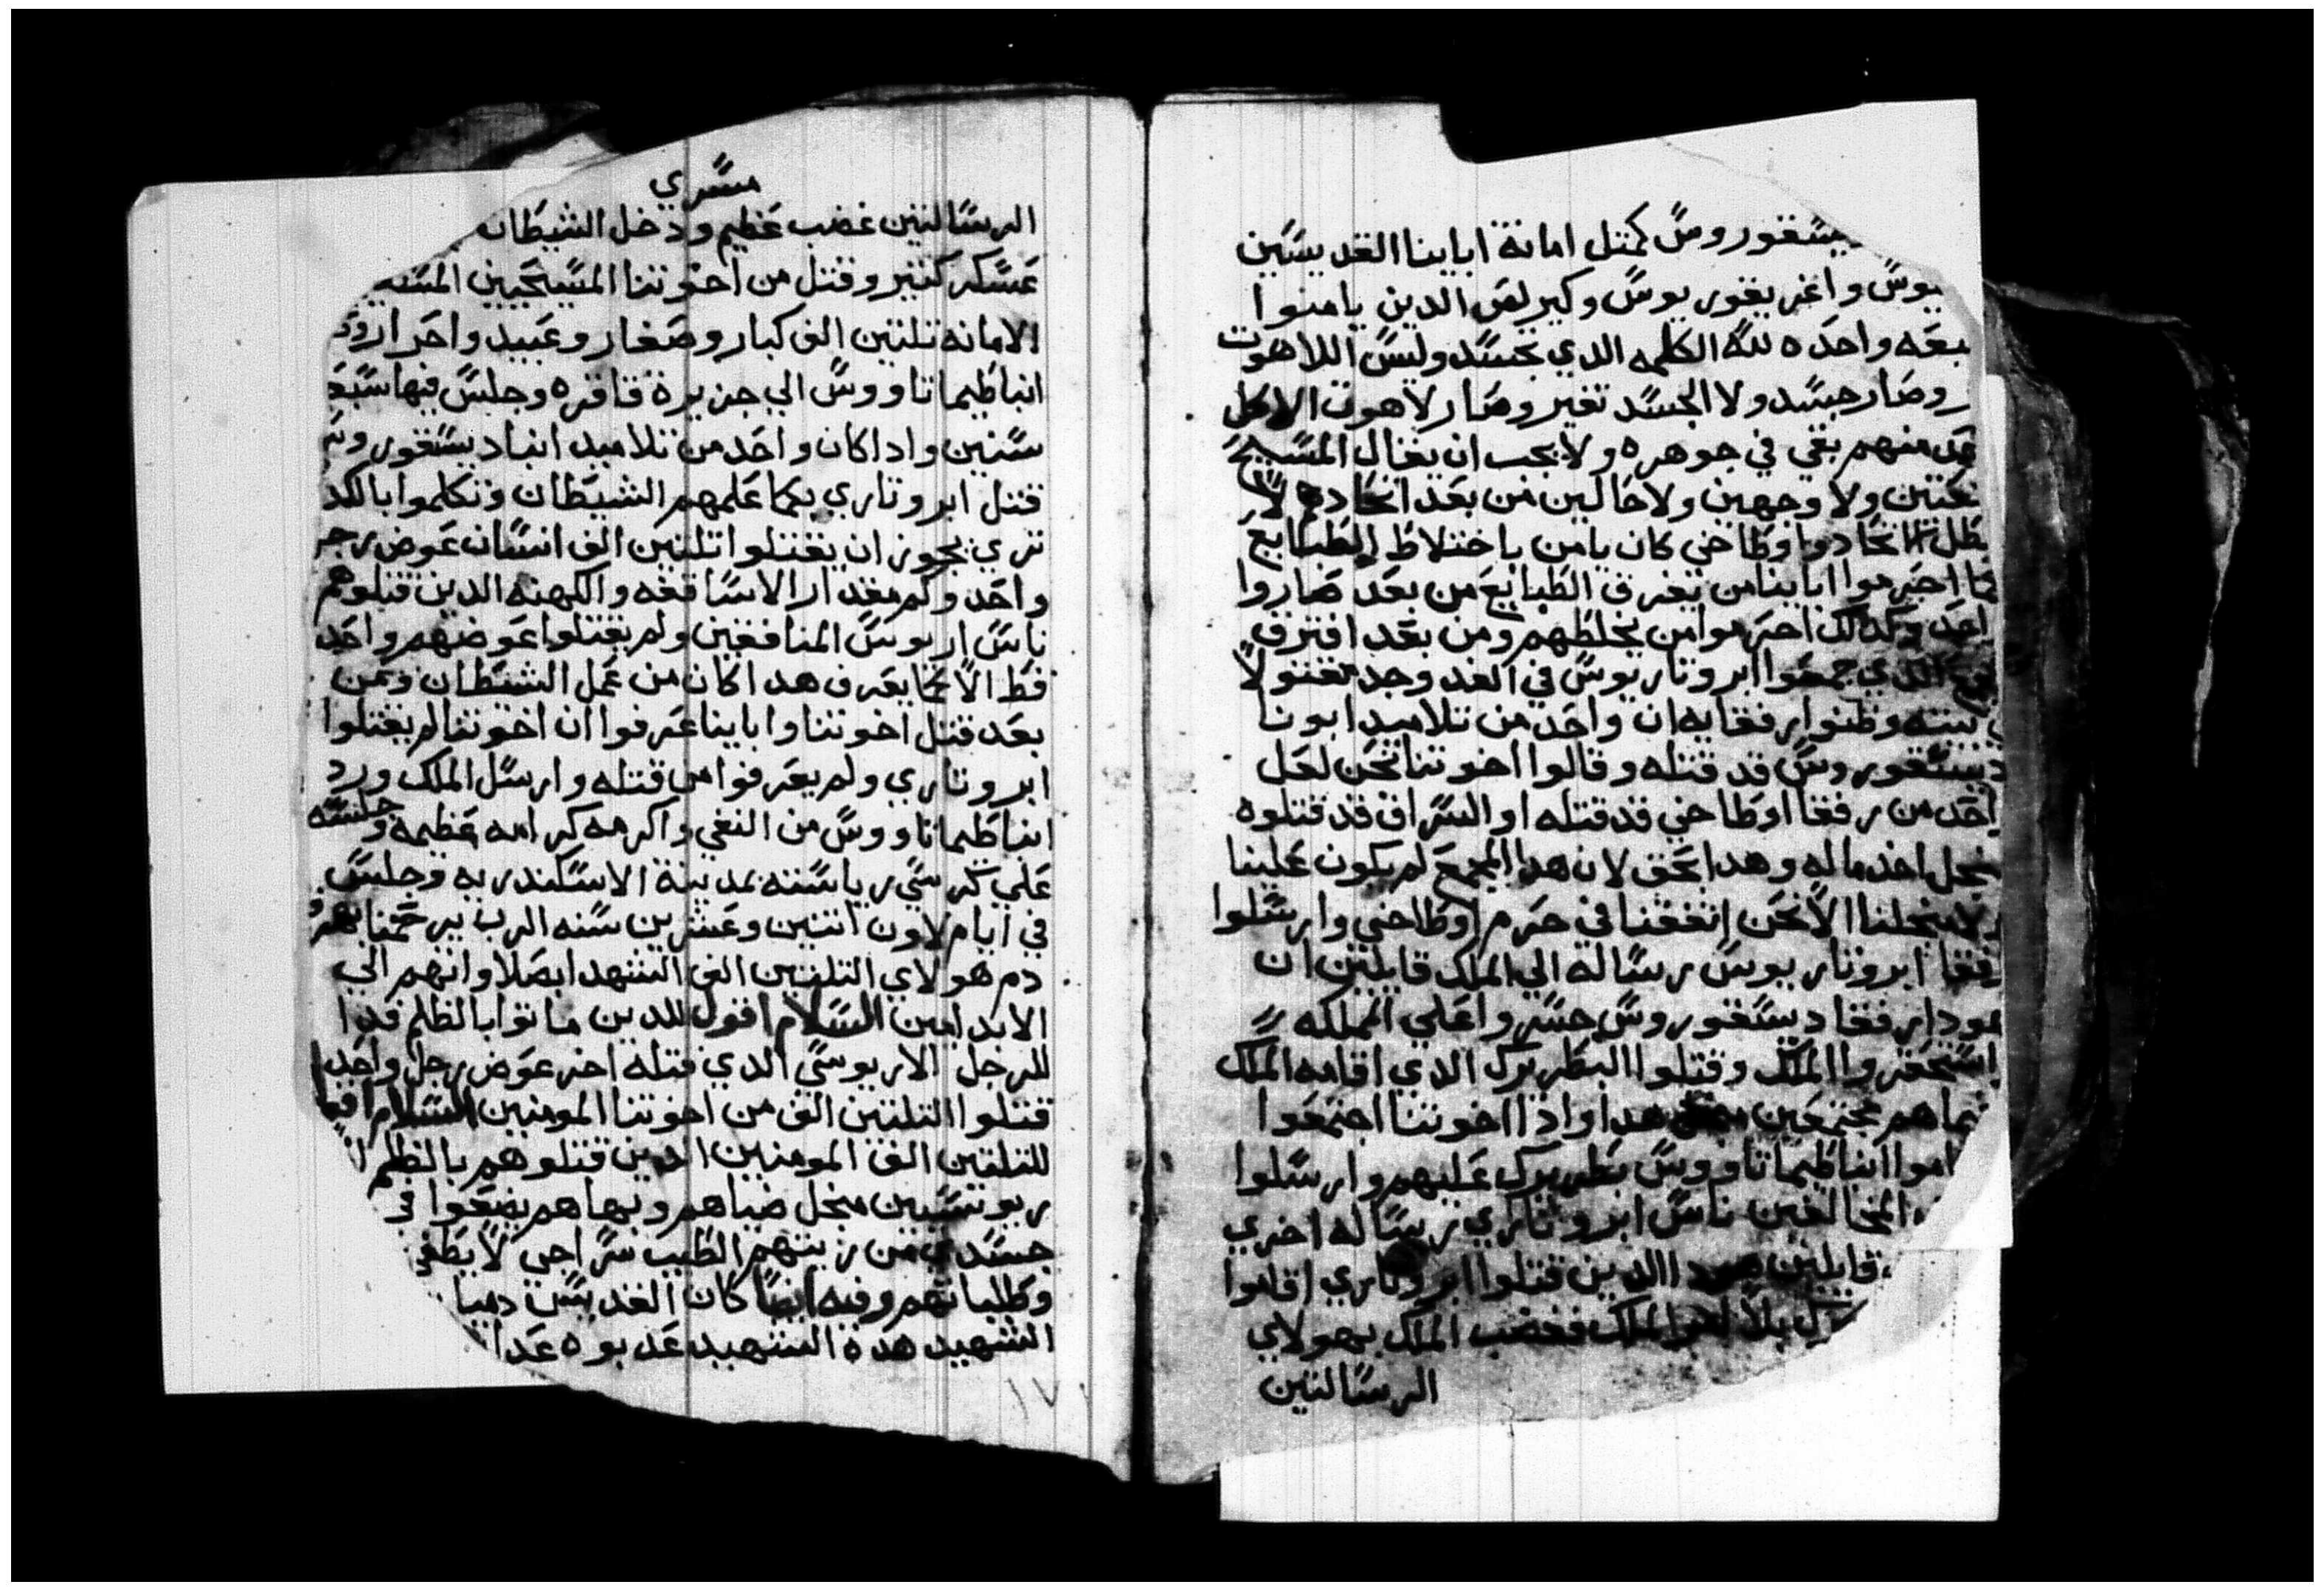 يسقوروس كمتل امانة اباينا القديسين
يوس واغريغوريوس وكيرلص الدين يامنوا
بيعه واحده لله الكلمه الدي تجسد وليس اللاهوت
وصار جسد ولا الجسد تغير وصار لاهوت الا كل
منهم بقي في جوهره ولا يجب ان يقال المسيح
ولا وجهين ولا حالين من بعد اتحاده لان
اوطاخي كان يامن باختلاط الطبايع
كما احرموا اباينا من يفرق الطبايع من بعد صاروا
وكدلك احرموا من يخلطهم ومن بعد افترق
الدي جمعوا ابروتاريوس في الغد وجد مقتولا
بيته وظنوا رفقايه ان واحد من تلاميد ابونا
ديسقوروس قد قتله وقالوا اخوتنا نحن لعل
احد من رفقا اوطاخي قد قتله او السراق قد قتلوه
اخد ماله وهدا بحق لان هدا المجمع لم يكون علينا
ولا منجلنا الا نحن اتفقنا في حرم اوطاخي وارسلوا
رفقا ابروتاريوس رساله الي الملك قايلين ان
رفقا ديسقوروس جسروا علي المملكه
استحقروا الملك وقتلوا البطريرك الدي اقامه الملك
هم مجتمعين هدا وادا اخوتنا اجتمعوا
انبا طيماتاووس بطريرك عليهم وارسلوا
المخالفين ناس ابروتاري رساله اخري
قايلين الدين قتلوا ابروتاري اقاموا
بلا امر الملك فغضب الملك بهولاي
الرسالتين
مسري
الرسالتين غضب عظيم ودخل الشيطان
عسكر كتير وقتل من اخوتنا المسيحيين
الامانه تلتين الف كبار وصغار وعبيد واحرار
انبا طيماتاووس الي جزيرة قاقره وجلس فيها سبع
سنين وادا كان واحد من تلاميد انبا ديسقوروس
قتل ابروتاري بكما علمهم الشيطان وتكلموا بالكد
تري يجوز ان يقتلوا تلتين الف انسان عوض رجل
واحد وكم مقدار الاساقفه والكهنه الدين قتلوهم
ناس اريوس المنافقين ولم يقتلوا عوضهم واحد
فقط الا كما يعرف هدا كان من عمل الشيطان ومن
بعد قتل اخوتنا واباينا عرفوا ان اخوتنا لم يقتلوا
ابروتاري ولم يعرفوا من قتله وارسل الملك ورد
انبا طيماتاووس من النفي واكرمه كرامه عظيمه وجلسه
علي كرسي رياسته بمدينة الاسكندريه وجلس
في ايام لاون اتنين وعشرين سنه الرب يرحمنا بهم و
دم هولاي التلتين الف الشهدا بصلاواتهم الي
الابد امين السلام اقول للدين ماتوا بالظلم فدا
للرجل الاريوسي الدي قتله اخر عوض رجل واحد
قتلوا التلتين الف من اخوتنا المومنين السلام اقول
للتلتين الف المومنين الدين قتلوهم بالظلم
منجل ضياهم وبهاهم يضعوا في
جسدي من زيتهم الطيب سراجي لا يطفي
وطلباتهم وفيه ايضا كان القديس دميا
الشهيد هده الشهيد عدبوه عدا
١٧١